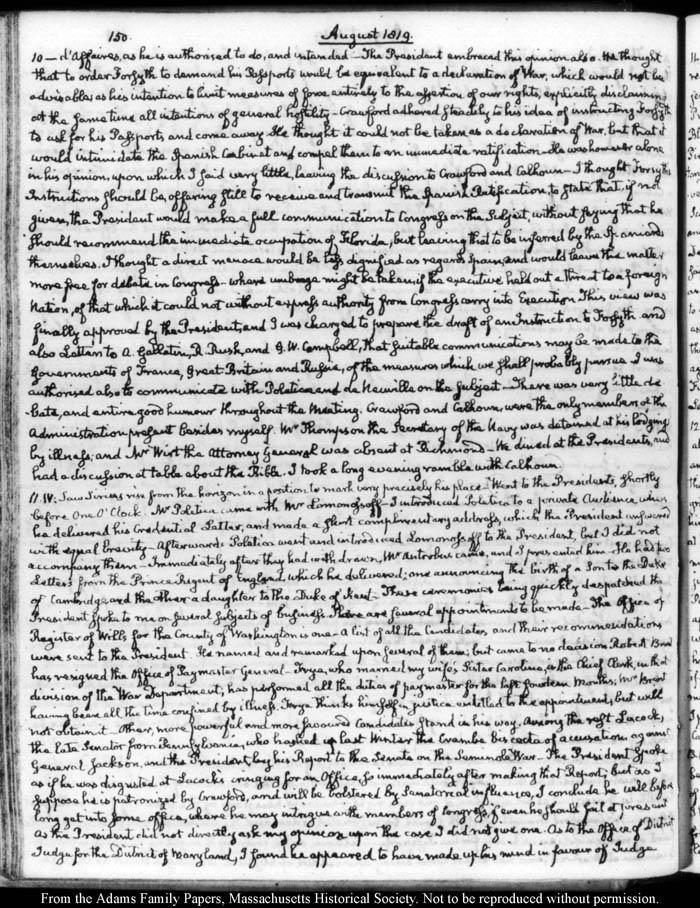 150. August 1819.
10 — d'Affaires, as he is authorised to do, and intended — The President embraced this opinion also. He thought
that to order Forsyth to demand his Passports would be equivalent to a declaration of War, which would not be
adviseable; as his intention to limit measures of force entirely to the assertion of our rights, explicitly disclaiming
at the same time all intentions of general hostility — Crawford adhered steadily to his idea of instructing Forsyth
to ask for his Passports, and come away. He thought it could not be taken as a declaration of War, but that it
would intimidate the Spanish Cabinet and compel them to an immediate ratification — He was however alone
in his opinion, upon which I said very little, leaving the discussion to Crawford and Calhoun — I thought Forsyth's
Instructions should be, offering still to receive and transmit the Spanish Ratification, to state that, if not
given, the President would make a full communication to Congress on the Subject, without saying that he
should recommend the immediate occupation of Florida, but leaving that to be inferred by the Spaniards
themselves. I thought a direct menace would be less dignified as regards Spain, and would leave the matter
more free for debate in Congress — where umbrage might be taken, if the executive held out a threat to a foreign
Nation, of that which it could not without express authority from Congress carry into Execution. This view was
finally approved by the President, and I was charged to prepare the draft of an Instruction to Forsyth and
also Letters to A. Gallatin, R. Rush, and G. W. Campbell, that suitable communications may be made to the
Governments of France, Great Britain and Russia, of the measures which we shall probably pursue. I was
authorised also to communicate with Poletica and de Neuville on the subject — There was very little de
bate, and entire good humour throughout the Meeting. Crawford and Calhoun, were the only members of the
Administration present besides myself. Mr Thompson the Secretary of the Navy was detained at his lodgings
by illness; and Mr Wirt the Attorney General was absent at Richmond — We dined at the Presidents, and
had a discussion at table about the Bible. I took a long evening ramble with Calhoun.
11. W. Saw Sirius rise from the horizon in a position to mark very precisely his place — Went to the Presidents, shortly
before One O'Clock. Mr Poletica came with Mr Lomonossoff — I introduced Poletica to a private Audience, when
he delivered his Credential Letter, and made a short complimentary address, which the President answered
with equal brevity — Afterwards Poletica went and introduced Lomonossoff to the President, but I did not
accompany them — Immediately after they had withdrawn, Mr Antrobus came, and I presented him — He had two
Letters from the Prince Regent of England, which he delivered; one announcing the birth of a Son to the Duke
of Cambridge, and the other a daughter to the Duke of Kent — These ceremonies being quickly despatched the
President spoke to me on several subjects of business. There are several appointments to be made — The Office of
Register of Wills, for the County of Washington is one — A list of all the Candidates, and their recommendations
were sent to the President. He named and remarked upon several of them; but came to no decision. Robert Brent
has resigned the Office of Paymaster General — Frye, who married my wife's Sister Carolina, is the Chief Clerk in that
division of the War Department; has performed all the duties of paymaster for the last fourteen Months; Mr Brent
having been all the time confined by illness. Frye thinks himself in justice entitled to the appointment, but will
not obtain it. Other, more powerful and more favoured Candidates stand in his way. Among the rest Lacock,
the late Senator from Pennsylvania, who hashed up last Winter the Crambe bis cocta of accusation against
General Jackson, and the President, by his Report to the Senate on the Seminole War — The President spoke
as if he was disgusted at Lacock's cringing for an Office, so immediately after making that Report; but as I
suppose he is patronized by Crawford, and will be bolstered by Senatorial influence, I conclude he will before
long get into some office, where he may intrigue with members of Congress, if even he should fail at present
As the President did not directly ask my opinion upon the case I did not give one. As to the Office of District
Judge for the District of Maryland, I found he appeared to have made up his mind in favour of Judge
From the Adams Family Papers, Massachusetts Historical Society. Not to be reproduced without permission.